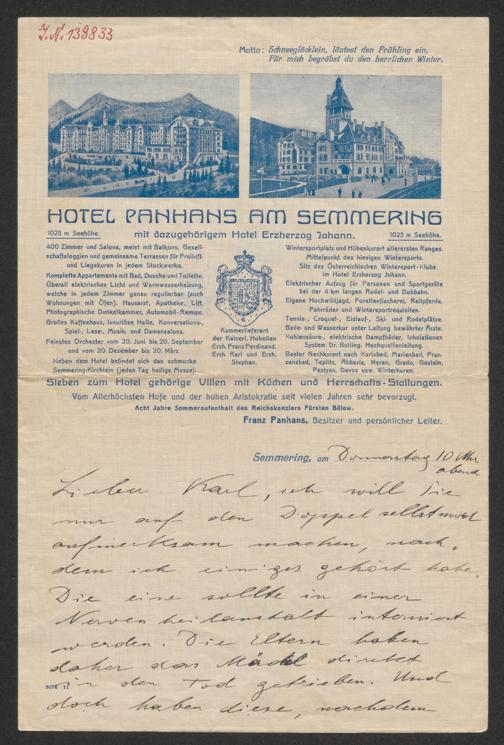 J.N. 138833
Motto: Schneeglöcklein, läutest den Frühling ein,
Für mich begräbst du den herrlichen Winter.
HOTEL PANHANS AM SEMMERING
1025 m Seehöhe.
mit dazugehörigem Hotel Erzherzog Johann.
1025 m Seehöhe.
400 Zimmer und Salons, meist mit Balkons, Gesell-
schaftsloggien und gemeinsame Terrassen für Freiluft-
und Liegekuren in jedem Stockwerke.
Komplette Appartements mit Bad, Dusche und Toilette.
Überall elektrisches Licht und Warmwasserheizung,
welche in jedem Zimmer genau regulierbar (auch
Wohnungen mit Öfen). Hausarzt, Apotheke, Lift.
Photographische Dunkelkammer, Automobil-Remise.
Großes Kaffeehaus, luxuriöse Halle, Konversations-,
Spiel-, Lese-, Musik- und Damensalons.
Feinstes Orchester vom 20. Juni bis 20. September
und vom 20. Dezember bis 20. März.
Neben dem Hotel befindet sich das schmucke
Semmering-Kirchlein (jeden Tag heilige Messe).
Kammerlieferant
der Kaiserl. Hoheiten
Erzh. Franz Ferdinand,
Erzh. Karl und Erzh.
Stephan.
Wintersportplatz und Höhenkurort allerersten Ranges.
Mittelpunkt des hiesigen Wintersports.
Sitz des Österreichischen Wintersport-Klubs
im Hotel Erzherzog Johann.
Elektrischer Aufzug für Personen und Sportgeräte
bei der 4 km langen Rodel- und Bobbahn.
Eigene Hochwildjagd, Forellenfischerei, Reitpferde,
Fahrräder und Wintersportrequisiten.
Tennis-, Croquet-, Eislauf-, Ski- und Rodelplätze.
Bade- und Wasserkur unter Leitung bewährter Ärzte.
Kohlensäure-, elektrische Dampfbäder, Inhalationen
System Dr. Bulling. Hochquellenleitung.
Bester Nachkurort nach Karlsbad, Marienbad, Fran-
zensbad, Teplitz, Abbazia, Meran, Grado, Gastein,
Pestyan, Davos usw. Winterkuren.
Sieben zum Hotel gehörige Villen mit Küchen und Herrschafts-Stallungen.
Vom Allerhöchsten Hofe und der hohen Aristokratie seit vielen Jahren sehr bevorzugt.
Acht Jahre Sommeraufenthalt des Reichskanzlers Fürsten Bülow.
Franz Panhans, Besitzer und persönlicher Leiter.
Semmering, am Donnerstag 10 Uhr
abend
Lieber Karl, ich will Sie
nur auf den Doppelselbstmord
aufmerksam machen, nach-
dem ich einiges gehört habe.
Die eine sollte in einer
Nervenheilanstalt interniert
werden. Die Eltern haben
daher das Mädel direkt
in den Tod getrieben. Und
doch haben diese, nachdem